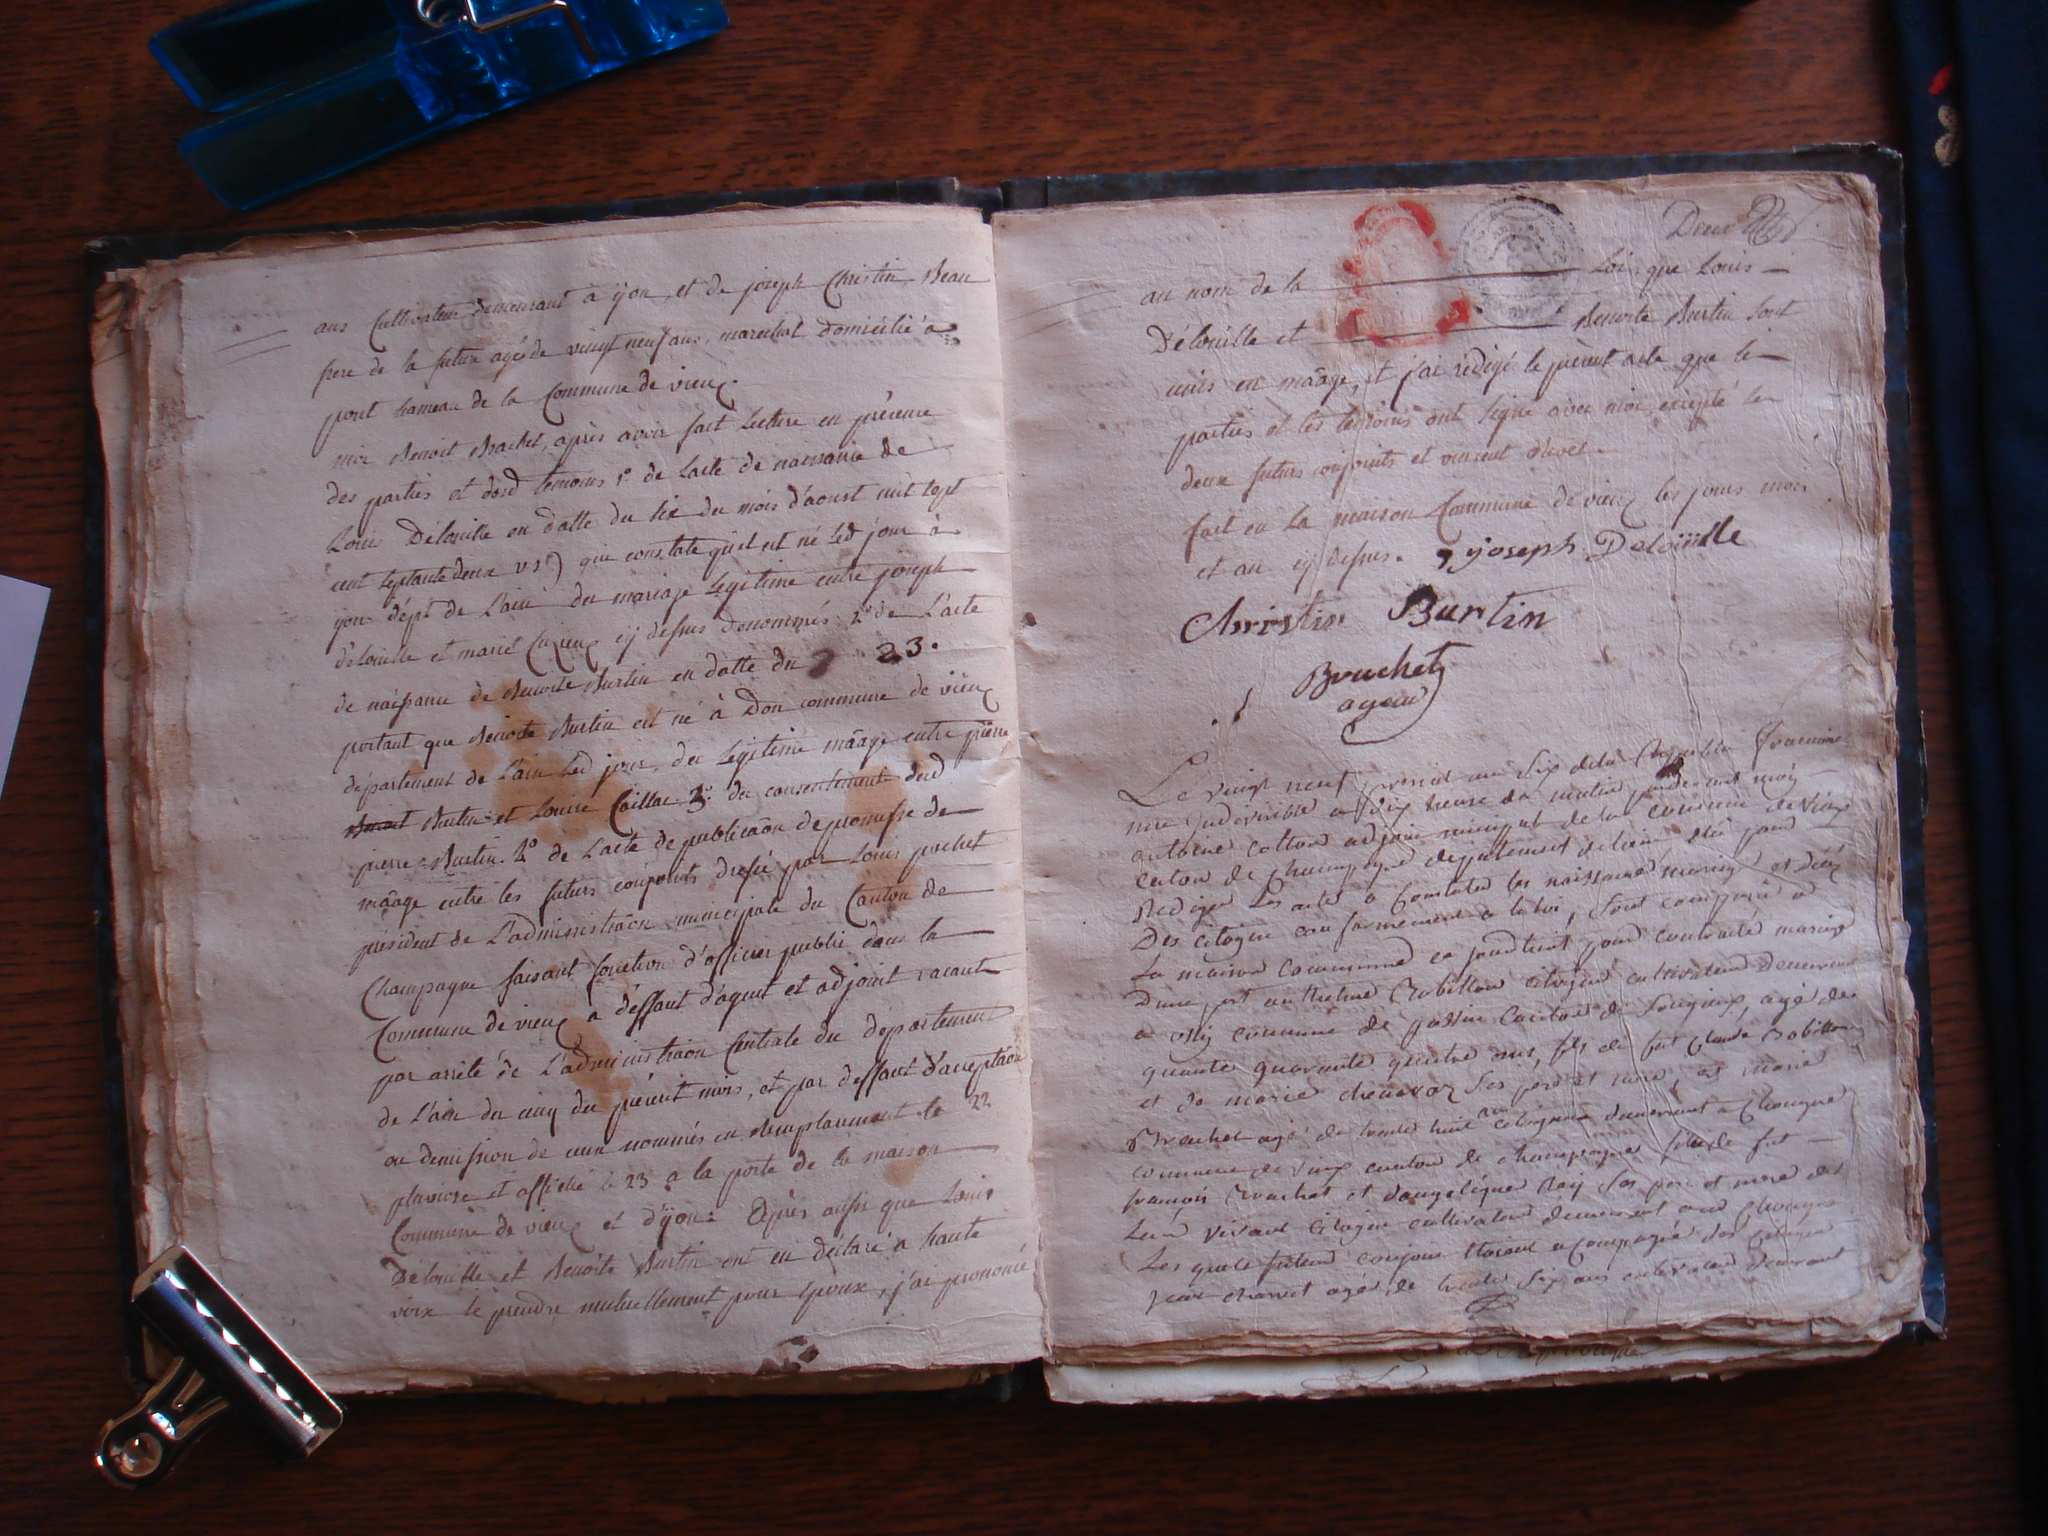 ans Cultivateur demeurant à yon, et de joseph Christin Beau
frere de la future agé de vingt neuf ans, marechal domicilié à
pont hameau de la Commune de vieux.
moi Benoit Brachet, après avoir fait lecture en présence
des parties et desd temoins 1° de L'acte de naissance de
Louis Délouille en datte du six du mois d'aoust mil sept
cent septante deux qui constate qu'il est né led jour à
yon dépt de L'ain du mariage Legitime entre joseph
délouille et marie cy dessus denommés 2° de L'acte
de naissance de Benoite Burtin en datte du 23.
portant que Benoite Burtin est né à Don commune de vieux
département de L'ain led jour, du Legitime mãage entre pierre
Burtin et Louise Caillat 3° du consentement dud
pierre Burtin. 4° de L'acte de publicaõn de promesse de
mãage entre les futurs conjoints dressé par Louis pochet
président de L'administraõn municipale du Canton de
Champagne faisant fonction d'officier public dans la
Commune de vieux à deffaut d'agent et adjoint vacant
par arrêté de L'administraõn Centrale du département
de L'ain du cinq du présent mois, et par deffaut d'acceptaõn
ou demission de ceux nommés en remplacement le 22
pluviose et affiché le 23 a la porte de la maison
Commune de vieux et d'yon: Après aussi que Louis
Délouille et Benoite Burtin ont eu déclaré a haute
voix se prendre mutuellement pour Epoux, j'ai prononcé
Deux
au nom de la Loi que Louis
Délouille et Benoite Burtin sont
unis en mãage, et j'ai rédigé le présent acte que les
parties et les temoins ont signé avec moi excepté les
deux futurs conjoints et
fait en la maison Commune de vieux les jours mois
et an cy dessus. joseph Deloüille
Christin Burtin
Brachet
agent
Le vingt neuf an Six de la Republique francaise
une indivisible a dix heure du matin pardevant moy
antoine cotton adjoin municipal de la commune de vieux
canton de champagne departement de lain élu pour
Rediger les actes a Constater les naissance mariage et décès
Des citoyen conformement a la loi, sont comparu a
La maison commune pour contracté mariage
Dune part anthelme Robillon citoyen cultivateur demeurant
a commune de canton de agé de
quarante quatre ans, fils de fut Claude Robillon
et de marie ses pere et mere, et marie
Brachet agé de trente huit ans citoyenne demeurant a Chougne
commune de vieux canton de champagne fille de fut
françois Brachet et dangelique Ray Ses pere et mere
vivant citoyen cultivateur demeurant aud Chougne
Les quels futeur conjoin etoient acompagné des citoyen
agé de trente Six ans cultivateur demeurant